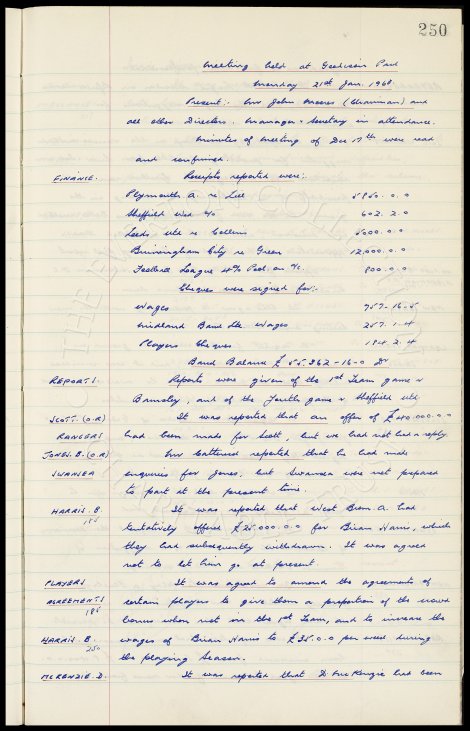 250
Meeting held at Goodison Park
Monday 21st Jan. 1963.
Present:- Mr John Moores (Chairman) and
all other Directors. Manager & Secretary in attendance.
Minutes of Meeting of Dec 17th were read
and confirmed.
FINANCE. Receipts reported were:-
Plymouth A. re 5850.0.0
Sheffield Wed % 602.2.0
Leeds Utd re Collins 5000.0.0
Birmingham City re Green 12,000.0.0
Football League 4% Pool on a/c. 800.0.0
Cheques were signed for:-
Wages 757-16-5
Midland Bank Wages 257.1.4
Players Cheques 184.2.4
Bank Balance £55.362-16-0 Dr
REPORTS Reports were given of the 1st Team game v
Barnsley, and of the Youth game v Sheffield Utd
SCOTT. (O.R) It was reported that an offer of £40.000.0.0
RANGERS had been made for Scott, but we had not had a reply.
JONES. B. (O.R) Mr Catterick reported that he had made
SWANSEA enquiries for Jones, but Swansea were not prepared
to part at the present time.
HARRIS. B. It was reported that West Brom. A. had
185 tentatively offered £25.000.0.0 for Brian Harris, which
they had subsequently withdrawn. It was agreed
not to let him go at present.
PLAYERS It was agreed to amend the agreements of
AGREEMENTS certain players to give them a proportion of the crowd
185 bonus when not in the 1st Team, and to increase the
HARRIS. B. wages of Brian Harris to £35.0.0 per week during
250 the playing Season.
MCKENZIE. D. It was reported that D. McKenzie had been